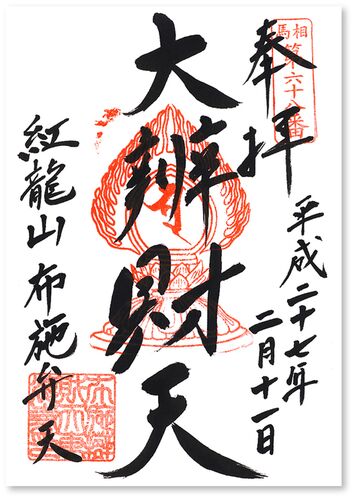 奉拝
相馬
第六十八番
平成二十七年
二月十一日
大辨財天
紅龍山布施弁天